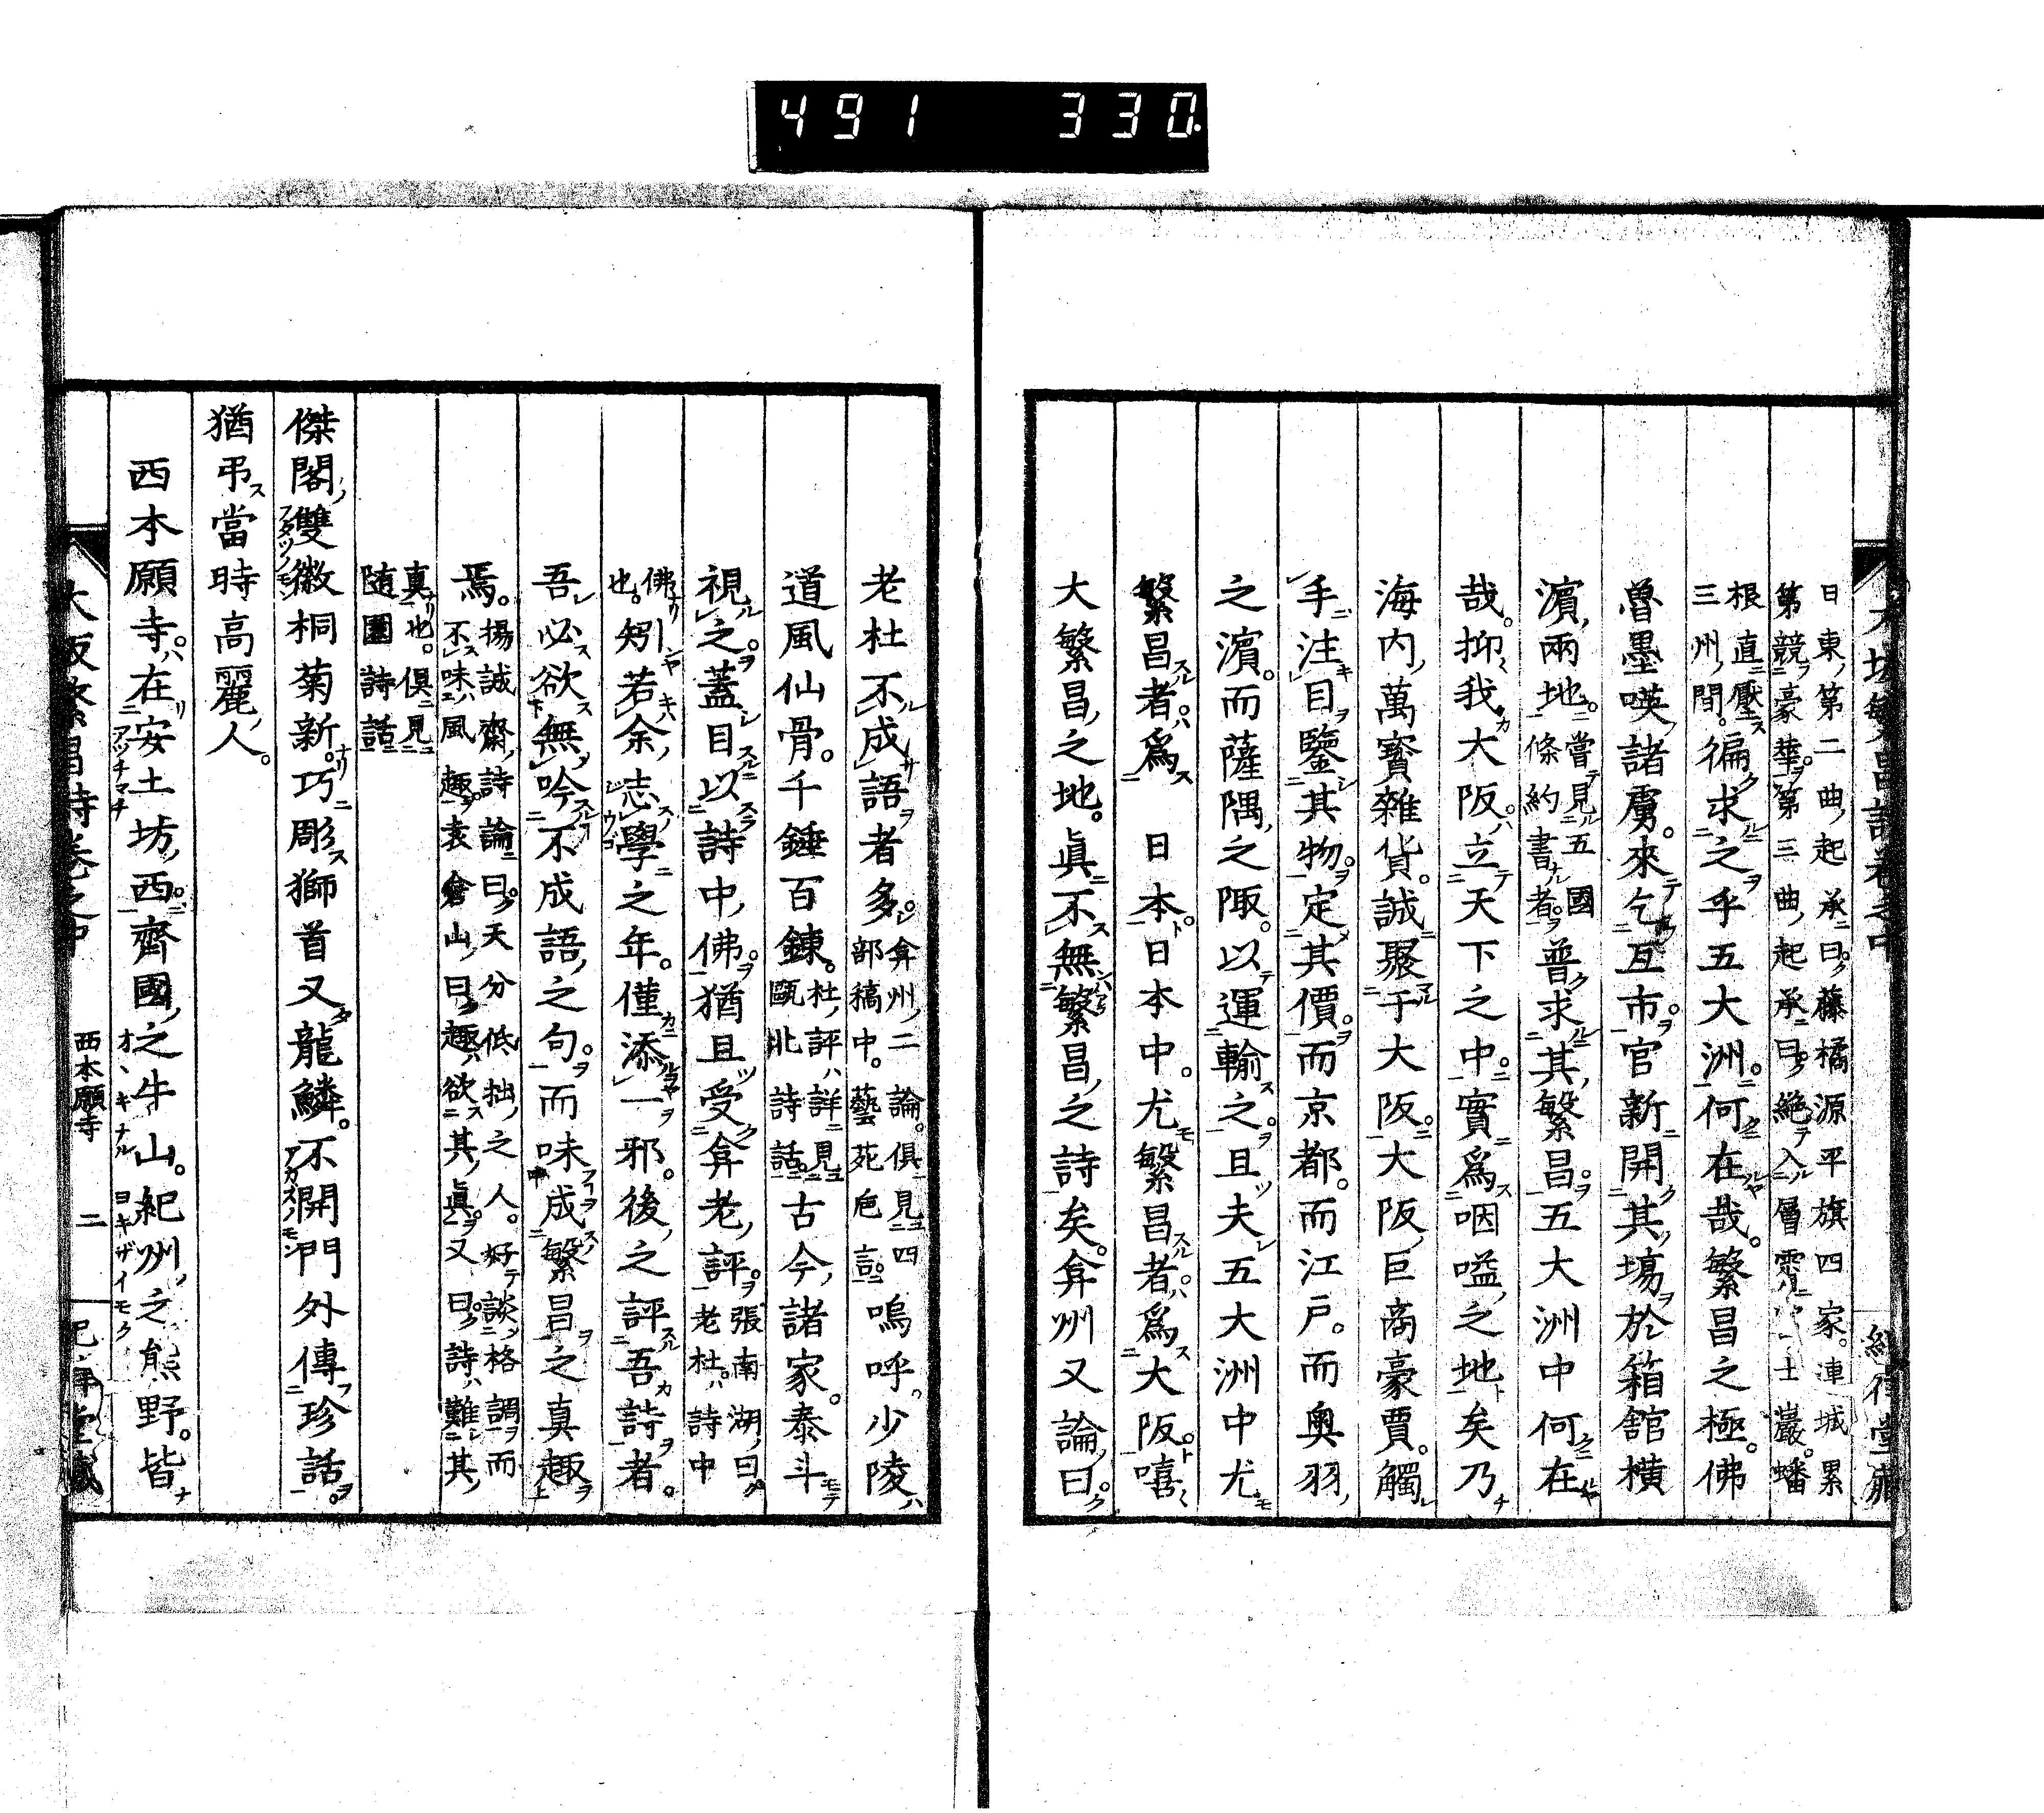 491 330
日東第二曲起承曰藤橘源平旗四家連城累
第競豪華第三曲起承曰絶入層霄 士巖蟠
根直壓三州間徧求之乎五大洲何在哉繁昌之極佛
魯墨暎諸虜來乞互市官新開其塲於箱館横
濵兩地嘗見五國條約書者普求其繁昌五大洲中何在
哉抑我大阪立天下之中實爲咽嗌之地矣乃
海内萬寳雜貨誠聚于大阪大阪巨商豪賈觸
手注目鑒其物定其價而京都而江戸而奥羽
之濵而薩隅之陬以運輸之且夫五大洲中尤
繁昌者爲日本日本中尤繁昌者爲大阪嘻
大繁昌之地眞不無繁昌之詩矣弇州又論曰
老杜不成語者多弇州二論俱見四部稿中藝苑巵言嗚呼少陵
道風仙骨千錘百錬杜評詳見甌北詩話古今諸家泰斗
視之蓋目以詩中佛猶且受弇老評張南湖曰老杜詩中
佛也矧若余志學之年僅添一邪後之評吾詩者
吾必欲無吟不成語之句而味成繁昌之真趣
焉楊誠齋詩論曰天分低拙之人好談格調而不味風趣袁倉山曰趣欲其眞又曰詩難其
真也俱見随園詩話
傑閣雙徽桐菊新巧彫獅首又龍鱗不開門外傳珍話
猶弔當時高麗人
西本願寺在安土坊西齊國之牛山紀州之熊野皆
大阪繁昌詩卷之中
西本願寺
二